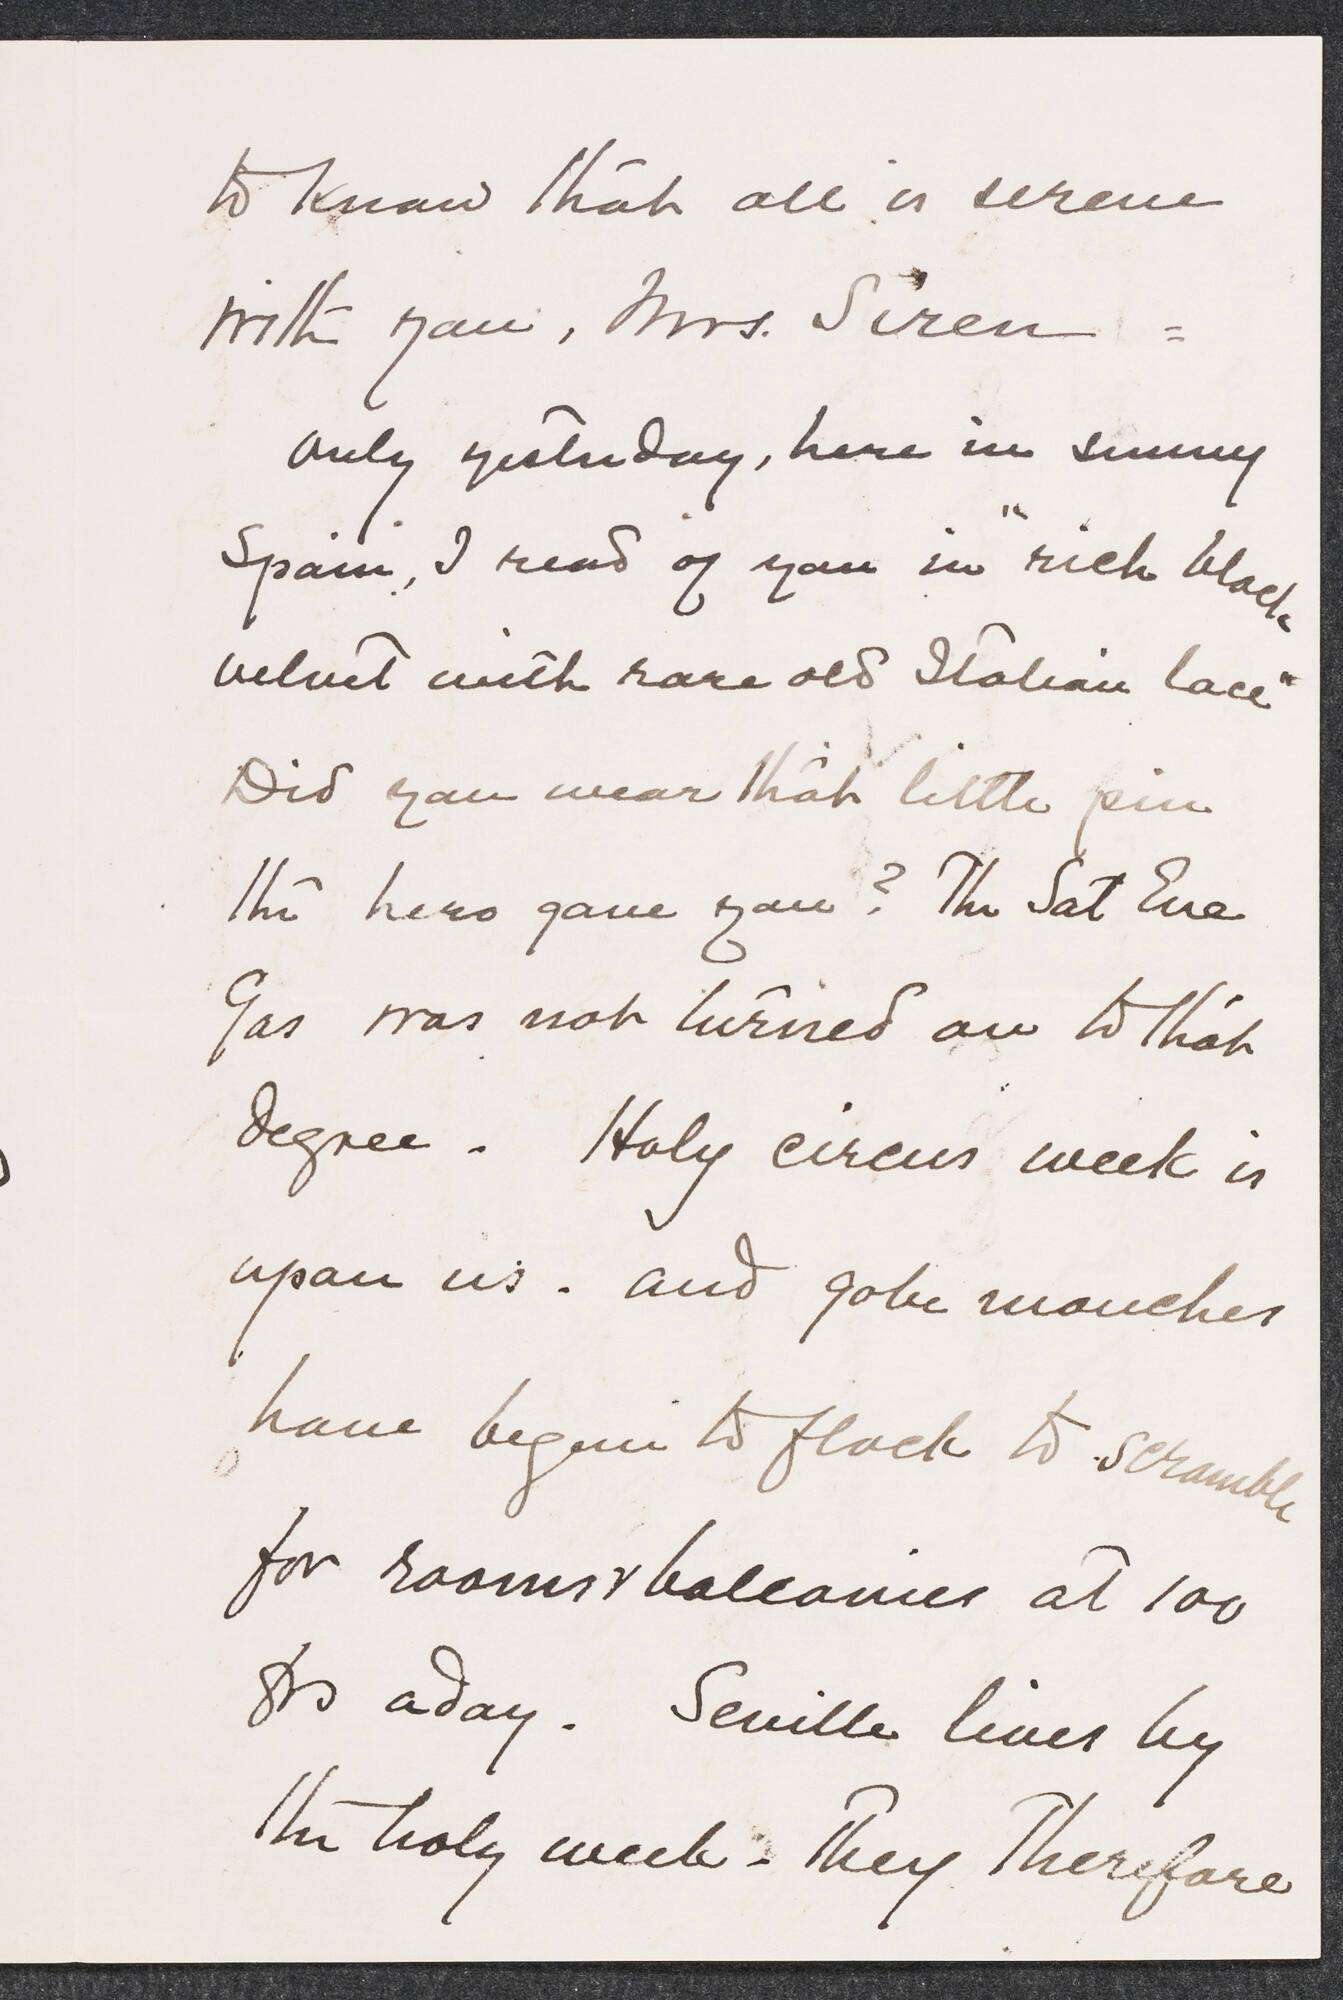 to know that all is serene
with you, Mrs. Siren =
only yesterday, here in sunny
Spain, I read of you in "rich black
velvet with rare old Italian lace"
Did you wear that little pin
the hero gave you? The Sat Eve
Gas was not turned on to that
degree. Holy circus week is
upon us. and gobe mouches
have begun to flock to scramble
for rooms & balconies at 100
frs a day. Seville lives by
the holy week - They therefore